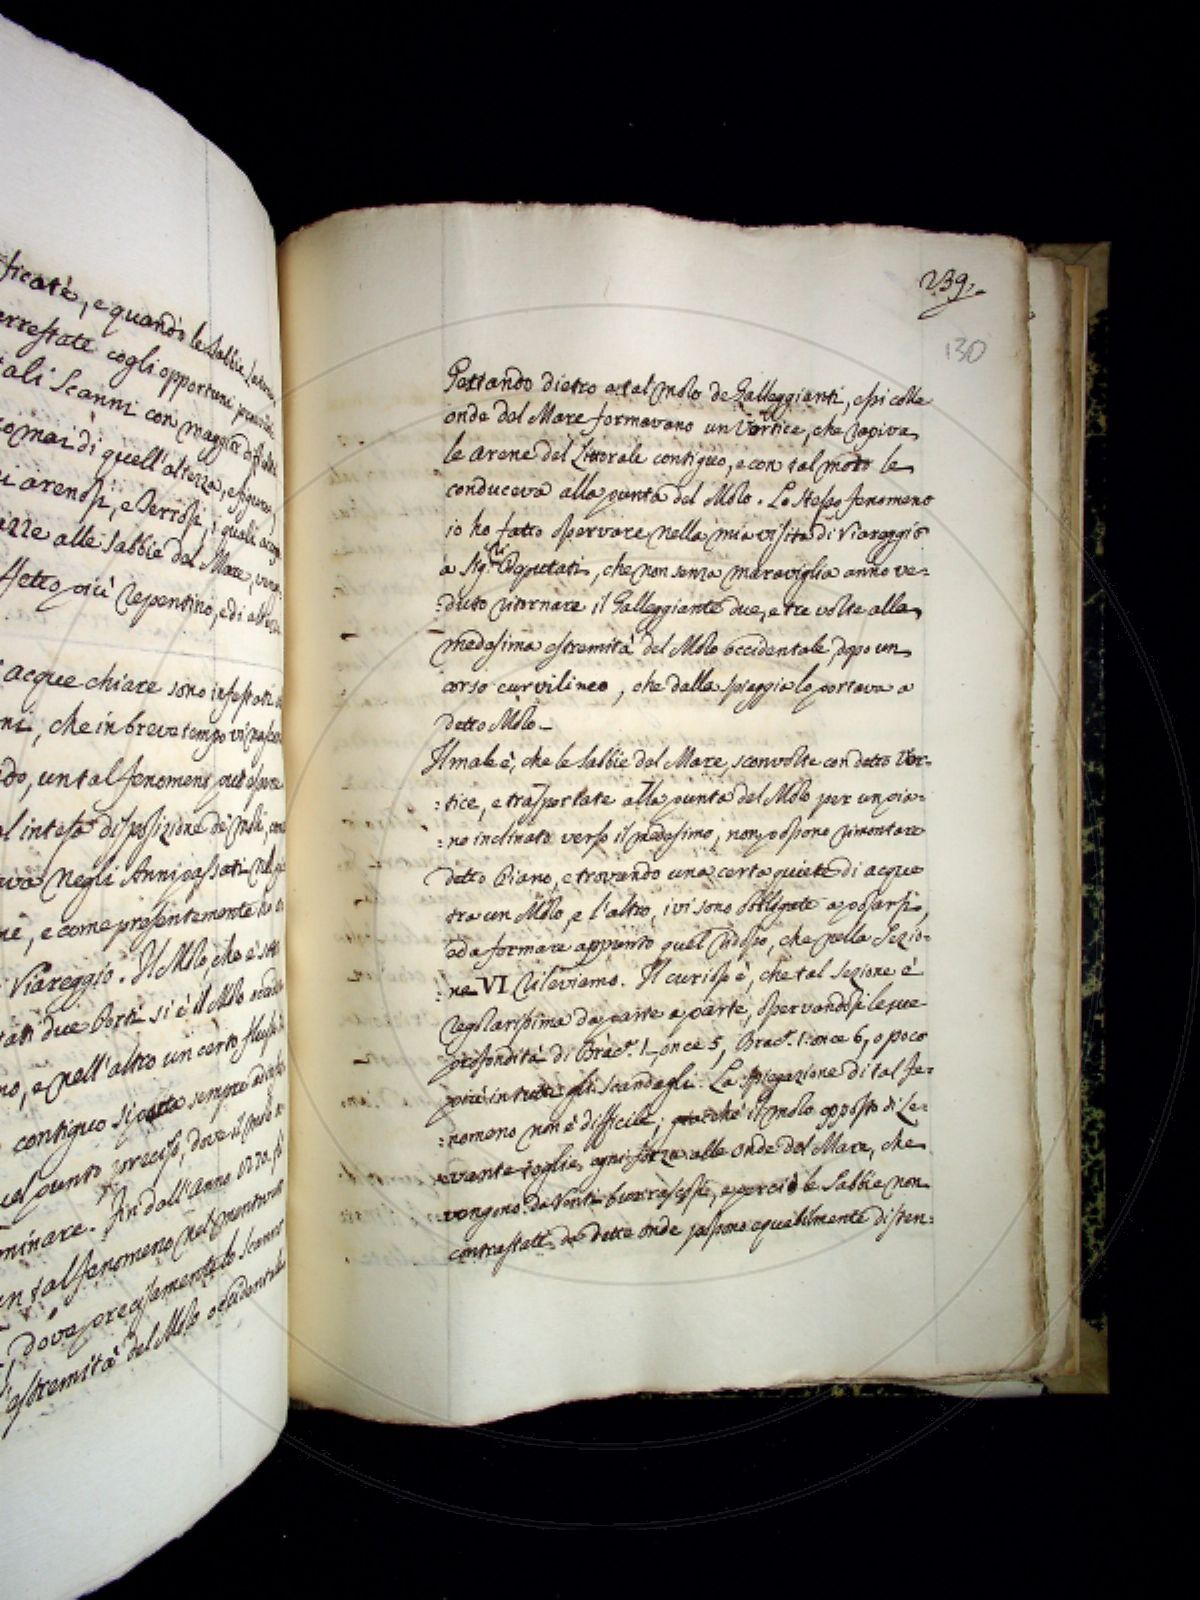 ficate, e quando le Sabbie
arrestate cogli opportuni
tali Scanni con maggior
mai di quell'altezza, e figura,
arenosi, e Terrosi, i quali
alle Sabbie del Mare,
ffetto più repentino, e di
acque chiare sono infestati
che in breve tempo vi
un tal fenomeno può
al intesa disposizione de' Moli,
negli Anni passati
e come presentemente
Viareggio. Il Molo, che è
due Porti si è il Molo
e nell'altro un certo flusso
contiguo si sempre
punto preciso, dove il
minare. Fin dall'anno 1770.
tal fenomeno nel
dove precisamente lo Scanno
estremità del Molo occidentale
239.
130
Gettando dietro a tal Molo de Galleggianti, essi colle
onde del Mare formavano un Vortice, che rapiva
le arene del Littorale contiguo, e con tal moto le
conduceva alla punta del Molo. Lo stesso fenomeno
io ho fatto osservare nella mia visita di Viareggio
a Sig.ri Deputati, che non senza maraviglia anno ve=
=duto ritornare il Galleggiante due, e tre volte alla
medesima estremità del Molo occidentale dopo un
corso curvilineo, che dalla spiaggia lo portava a
detto Molo.
Il male è, che le Sabbie del Mare, sconvolte con detto Vor=
=tice, e trasportate alla punta del Molo per un pia=
=no inclinato verso il medesimo, non possono rimontare
detto Piano, e trovando una certa quiete di acque
tra un Molo, e l'altro, ivi sono obbligate a posarsi,
ed a formare appunto quel ridosso, che nella Sezio=
=ne VI rileviamo. Il curioso è, che tal sezione è
regolarissima da parte a parte, osservandosi le sue
profondità di Brac. 1. once 5, Brac. 1. once 6, o poco
più in tutti gli scandagli. La spiegazione di tal fe=
=nomeno non è difficile; giacchè il Molo opposto di Le=
vante toglie ogni forza alle onde del Mare, che
vengono da Venti burrascosi, e perciò le Sabbie non
contrastate da dette onde possono equabilmente disten=